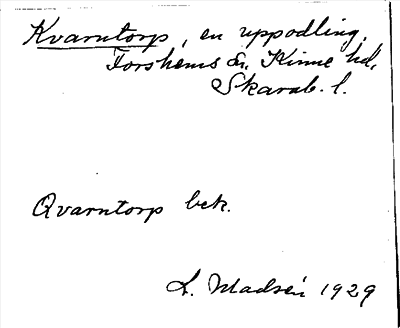 Kvarntorp, en uppodling,
Forshems sn. Kinne hd,
Skarab. l.
Qvarntorp bek.
L. Madsén 1929